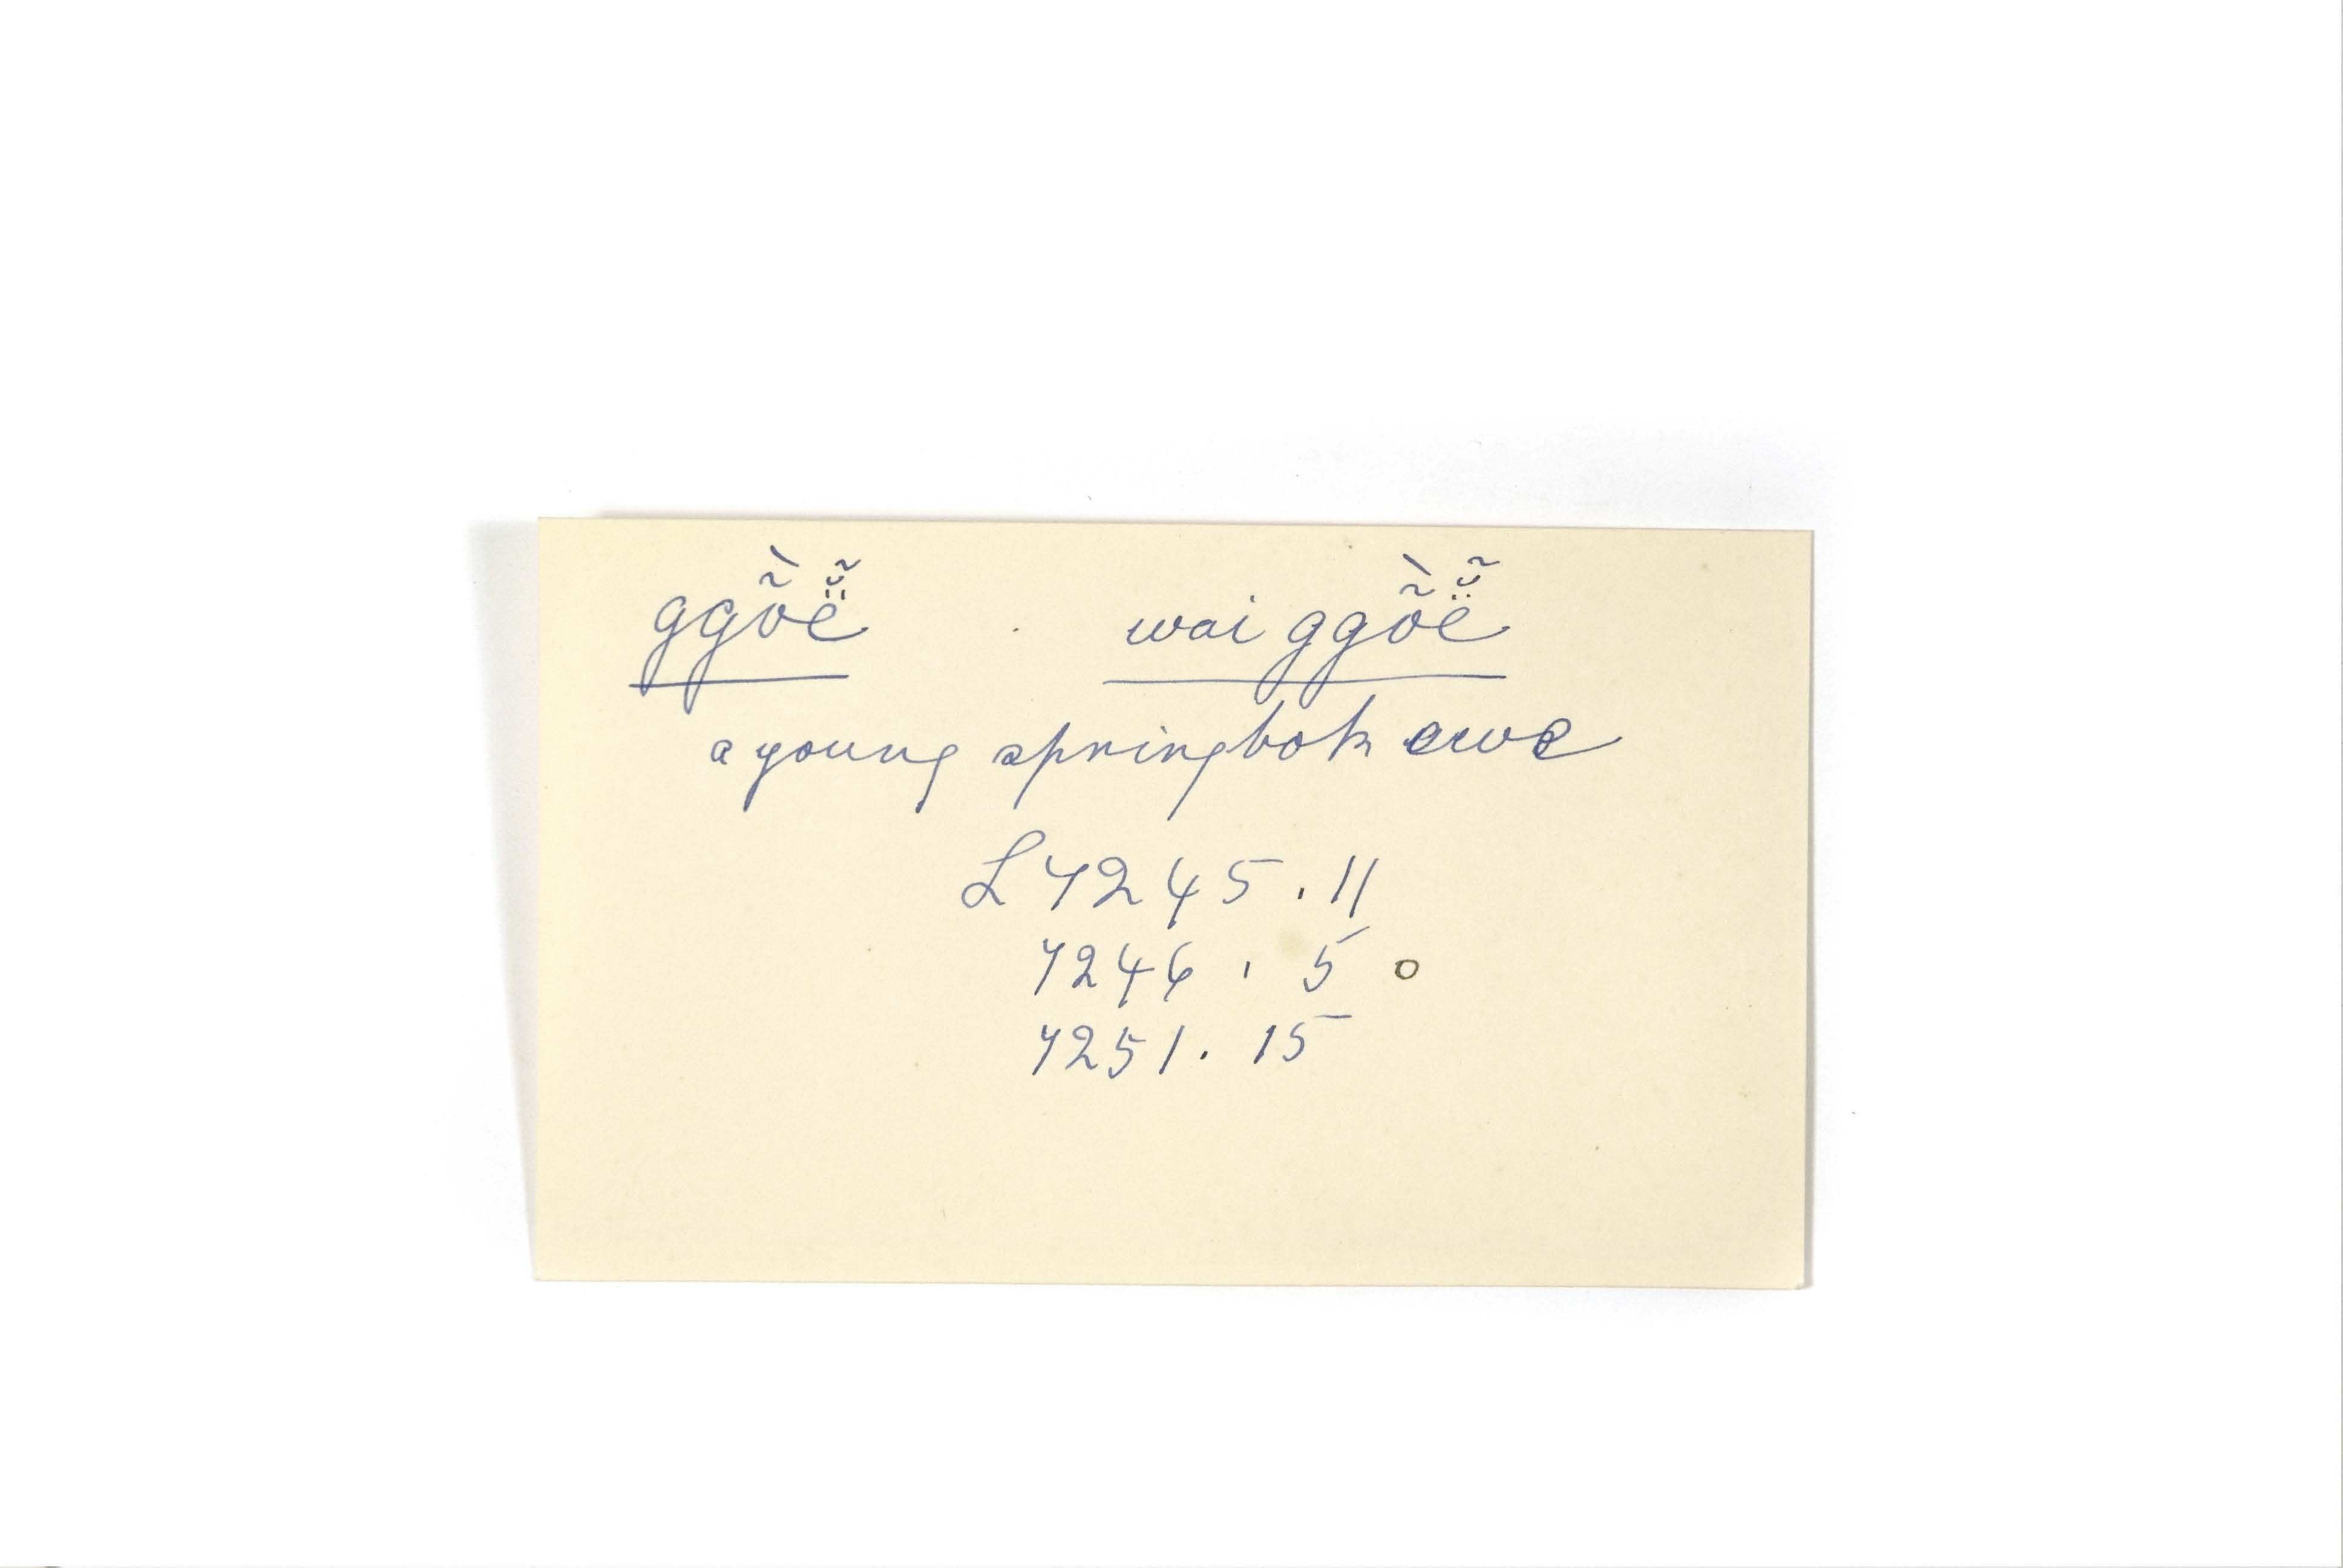 ggõ̀ë̆̃ wai ggõ̀ë̆̃
a young springbok ewe
L 7245 . 11
7246 . 5 o
7251 . 15